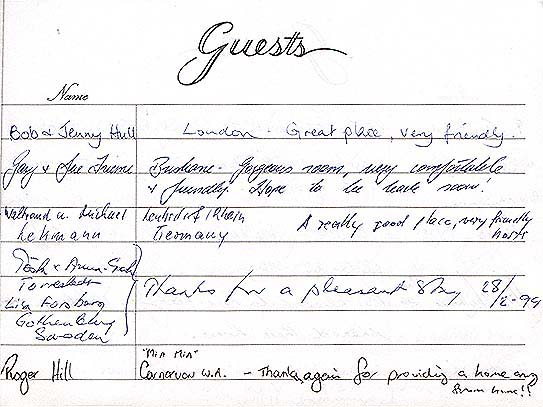 Guests
Name
Bob & Jenny Hull London - Great place, very friendly.
Gary & Sue Brisbane - Gorgeous room, very comfortable
& friendly. Hope to be back soon!
Waltraud u. Michael
Lehmann Germany A really good place, very friendly
hosts
Torrestedt Thanks for a pleasant stay 28/2-99
Lisa Forsberg
Gothenburg
Sweden
Roger Hill "Mia Mia"
Carnarvon W.A. - Thanks, again for providing a home away
from home!!